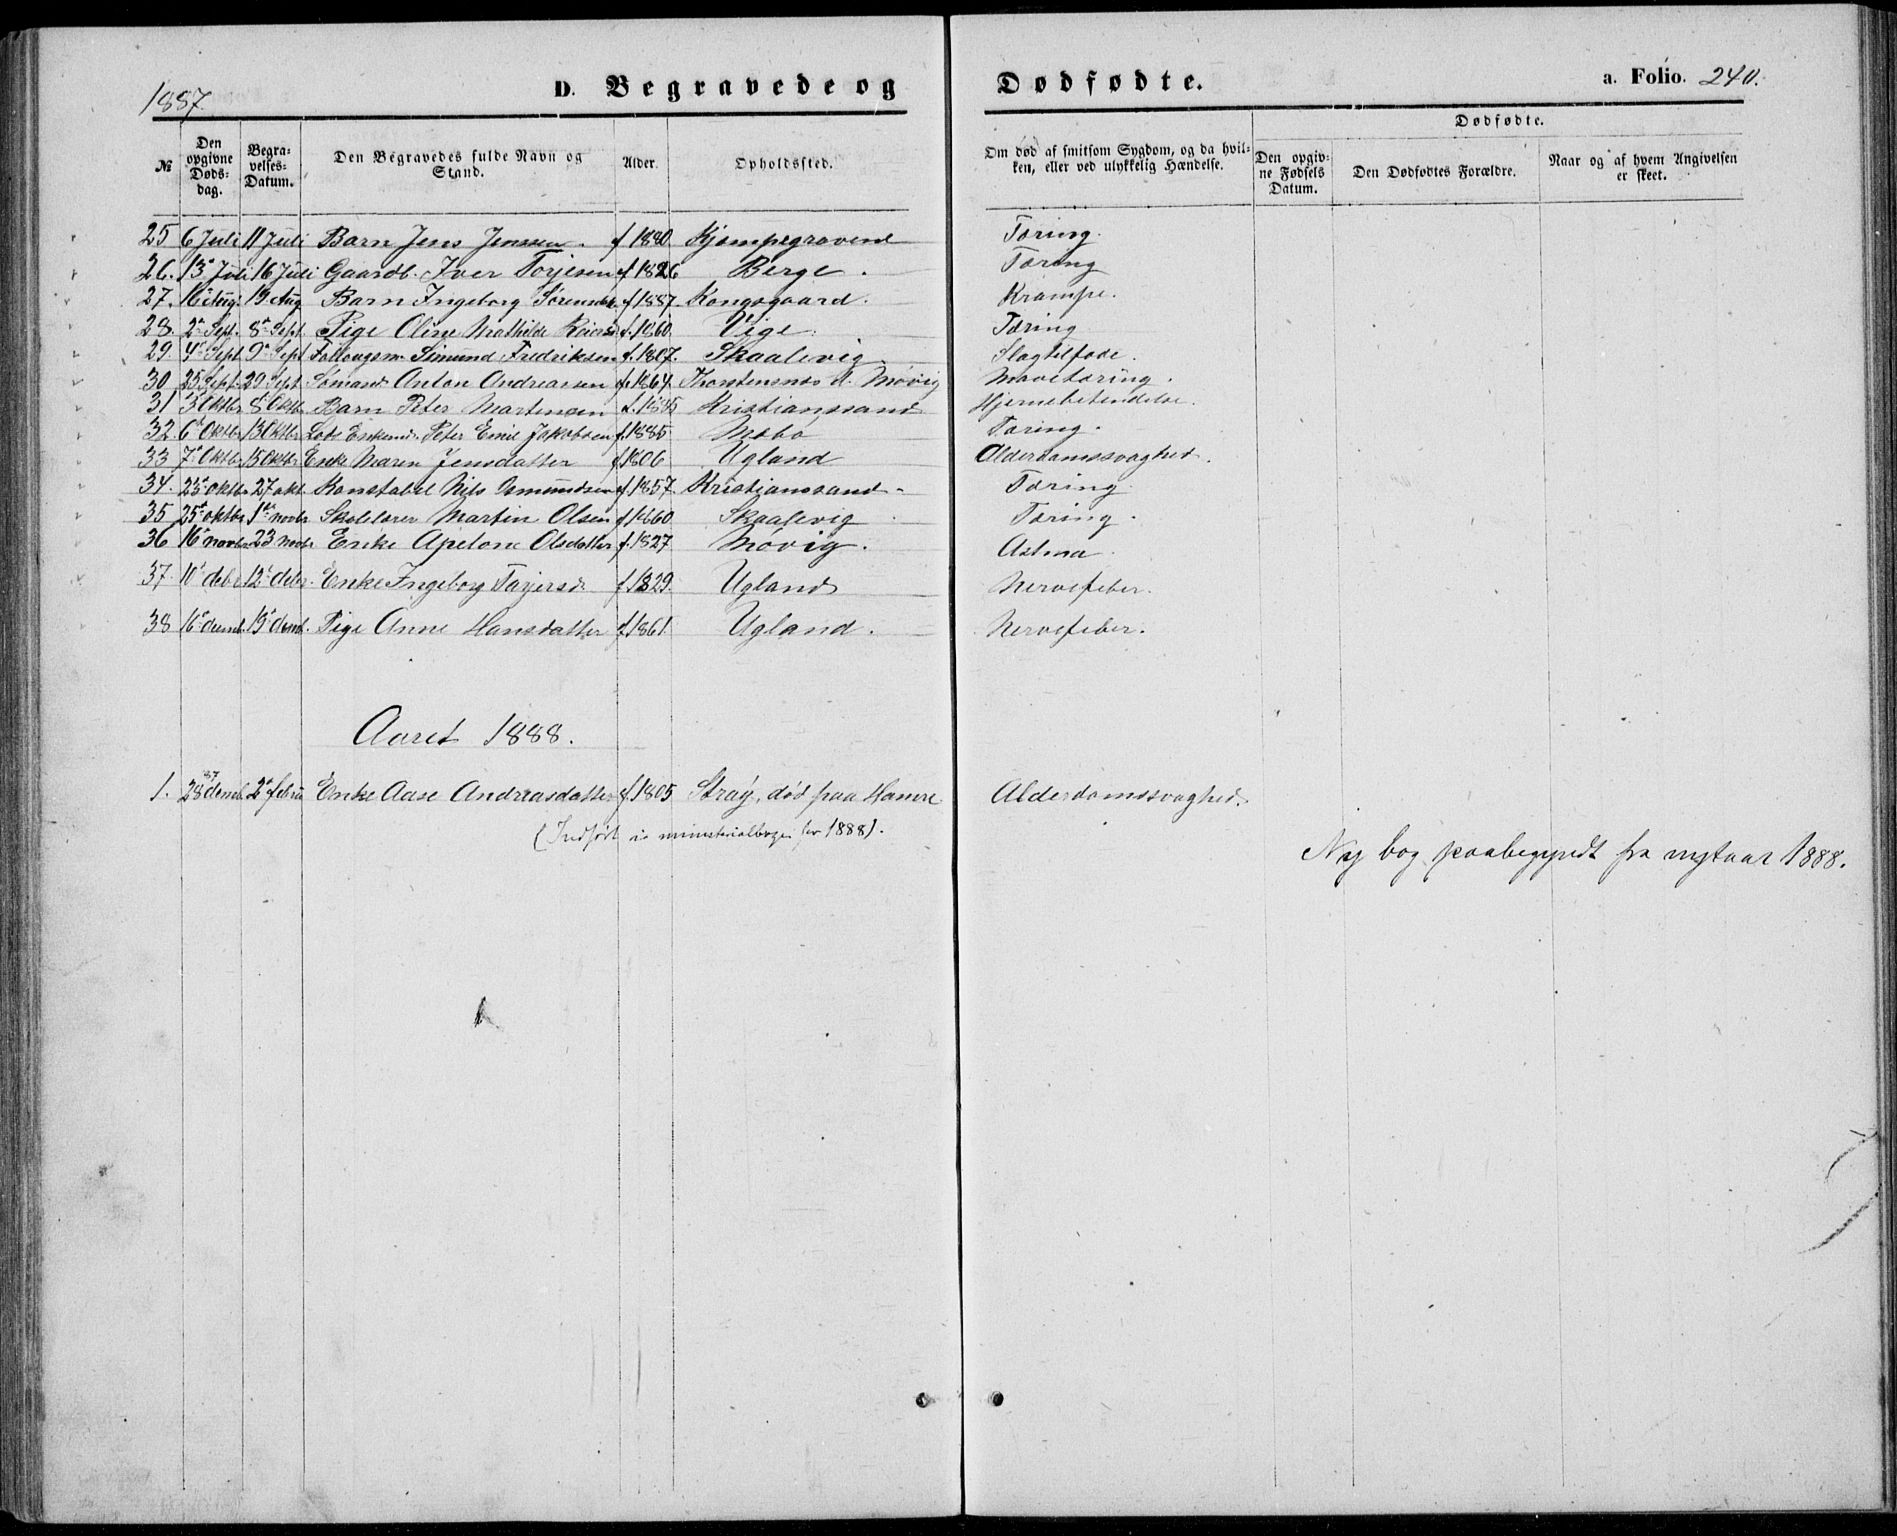 1887
D. Begravede og Dødfødte. a. Folio. 240.
№ Den opgivne Døds-dag. Begra-velses-Datum. Den Begravedes fulde Navn og Stand. Alder. Opholdssted. Om død af smitsom Sygdom, og da hvil-ken, eller ved ulykkelig Hændelse. Dødfødte. Den opgiv-ne Fødsels Datum. Den Dødfødtes Forældre. Naar og af hvem Angivelsen er skeet.
25 6 Juli 11 Juli Barn Jens Jenssen. f 1880 Kjæmpegravene Tæring.
26. 13 Juli 16 Juli Gaardb. Iver Torjesen f 1826 Berge. Tæring
27. 16 Aug. 19 Aug Barn Ingeborg Sørensdtr f 1887. Kongsgaard. Krampe.
28. 2 Sept. 8 Sept. Pige Oline Mathilde f. 1860. Vige. Tæring
29. 4 Sept 9 Sept Føllaugsm. Simund Fredriksen f. 1807. Skaalevig Slagtilfæde.
30 25 Sept. 29 Sept. Sømand Anton Andreassen f. 1864. Thorstensnæs u. Møvig Mavetæring.
31 3 Oktbr 8 Oktb. Barn Peter Martinsen f. 1885 Kristianssand Hjernebetændelse.
32 6 Oktbr 13 Oktbr Lods Enkem. Peter Emil Jakobsen f. 1885 Mæbø Tæring.
33 7 Oktbr 15 Oktbr Enke Maren Jensdatter f 1806 Ugland Alderdomssvaghed.
34. 23 oktbr. 27 okt. Konstabel Nils Osmundsen f. 1857 Kristianssand. Tæring
35 25 oktbr 1 novbr Skolelærer Martin Olsen f 1860 Skaalevig Tæring.
36 16 novbr. 23 novbr. Enke Apelone Olsdatter f. 1827 Møvig. Astma
37. 10 debr. 12 debr. Enke Ingeborg Tarjersd. f. 1829. Ugland Nervefeber.
38 16 decmb. 19 decmb. Pige Anne Hansdatter f. 1861. Ugland. Nervefeber.
Aaret 1888.
1. 28 decmb. 87 2 febru Enke Aase Andreasdatter f. 1805 Straÿ, død paa Hamre Alderdomssvaghed.
(Indført in ministerialbogen for 1888).
Ny bog paabegyndt fra nytaar 1888.